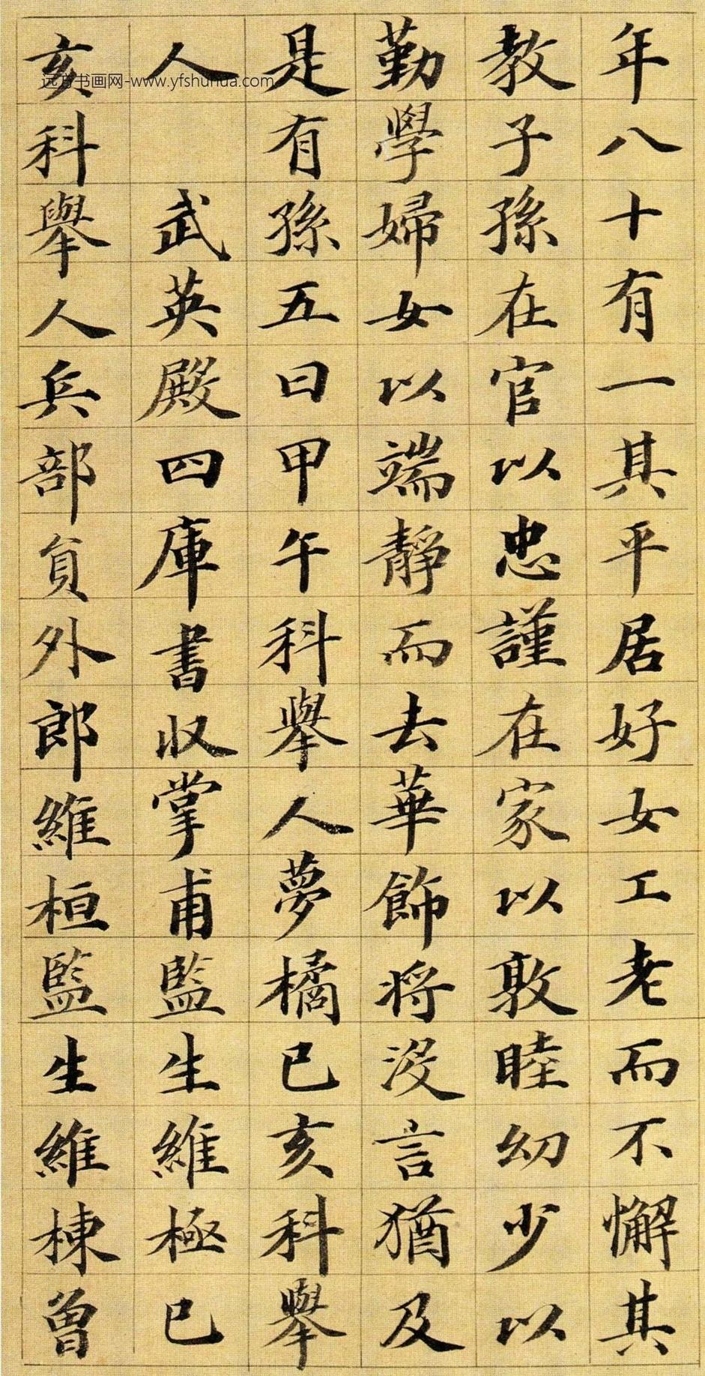 年八十有一其平居好女工老而不懈其
教子孫在官以忠謹在家以敦睦幼少以
勤學婦女以端靜而去華飾将没言猶及
是有孫五曰甲午科舉人夢橘已亥科舉
人 武英殿四庫書収掌甫監生維極已
亥科舉人兵部貟外郎維桓監生維棟曾
远方书画网-www.yfshuhua.com